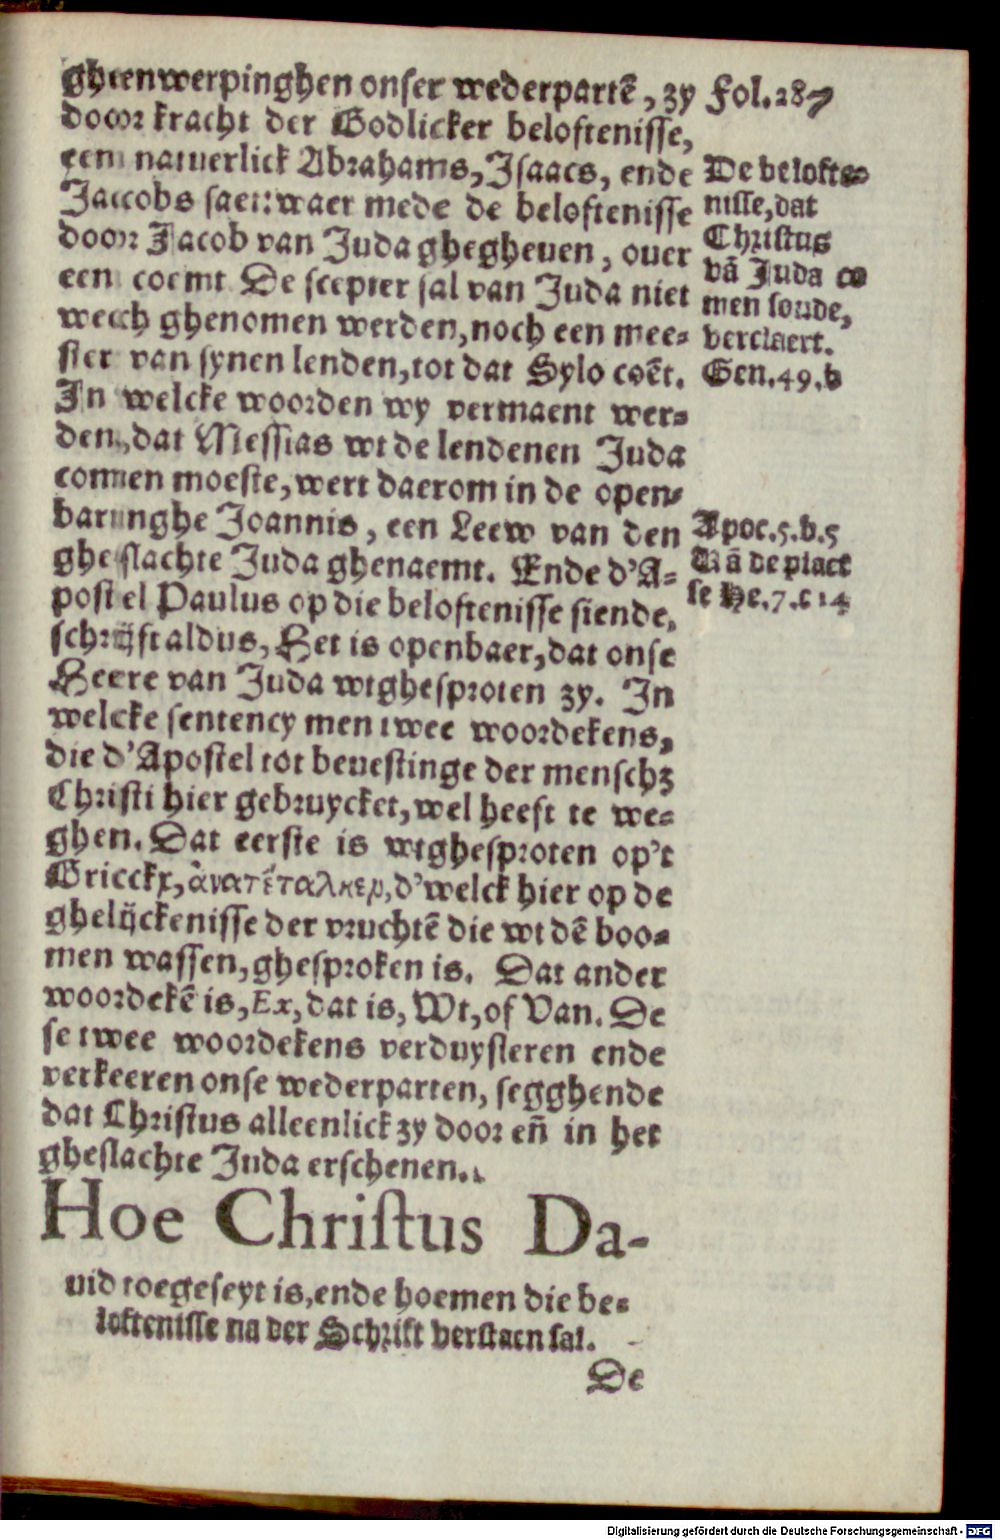 Fol.287
gheenwerpinghen onser wederpartẽ, zy
door kracht der Godlicker beloftenisse,
een natuerlick Abrahams, Isaacs, ende
Jaccobs saet: waer mede de beloftenisse
door Jacob van Juda ghegheuen, ouer
een coemt De scepter sal van Juda niet
wech ghenomen werden, noch een mee-
ster van synen lenden, tot dat Sylo coẽt.
In welcke woorden wy vermaent wer-
den, dat Messias wt de lendenen Juda
comen moeste, wert daerom in de open-
baringhe Joannis, een Leew van den
gheslachte Juda ghenaemt. Ende d'A-
postel Paulus op die beloftenisse siende,
schrijft aldus, Het is openbaer, dat onse
Heere van Juda wtghesproten zy. In
welcke sentency men twee woordekens,
die d'Apostel tot beuestinge der menschz
Christi hier gebruycket, wel heeft te we-
ghen. Dat eerste is wtghesproten op't
Griecks, ἀνατέταλκεν, d'welck hier op de
ghelijckenisse der vruchtẽ die wt dẽ boo-
men wassen, ghesproken is. Dat ander
woordekẽ is, Ex, dat is, Wt, of Van. De
se twee woordekens verduysteren ende
verkeeren onse wederparten, segghende
dat Christus alleenlick zy door eñ in het
gheslachte Juda erschenen.
De belofte-
nisse, dat
Christus
vã Juda co
men soude,
verclaert.
Gen.49.b
Apoc.5.b.5
Vã de plaet
se He.7.c 14
Hoe Christus Da-
uid toegeseyt is, ende hoemen die be-
loftenisse na der Schrift verstaen sal.
De
Digitalisierung gefördert durch die Deutsche Forschungsgemeinschaft - DFG